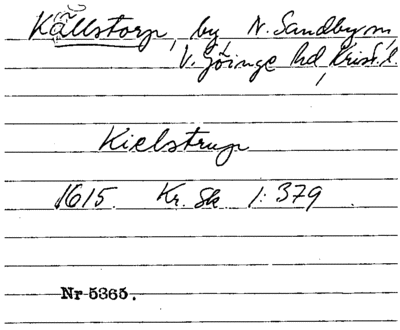 Källstorp, by N. Sandby sn,
V. Göinge hd, Krist. l.
Kielstrup
1615. Kr. Sk 1:379
Nr 5365.